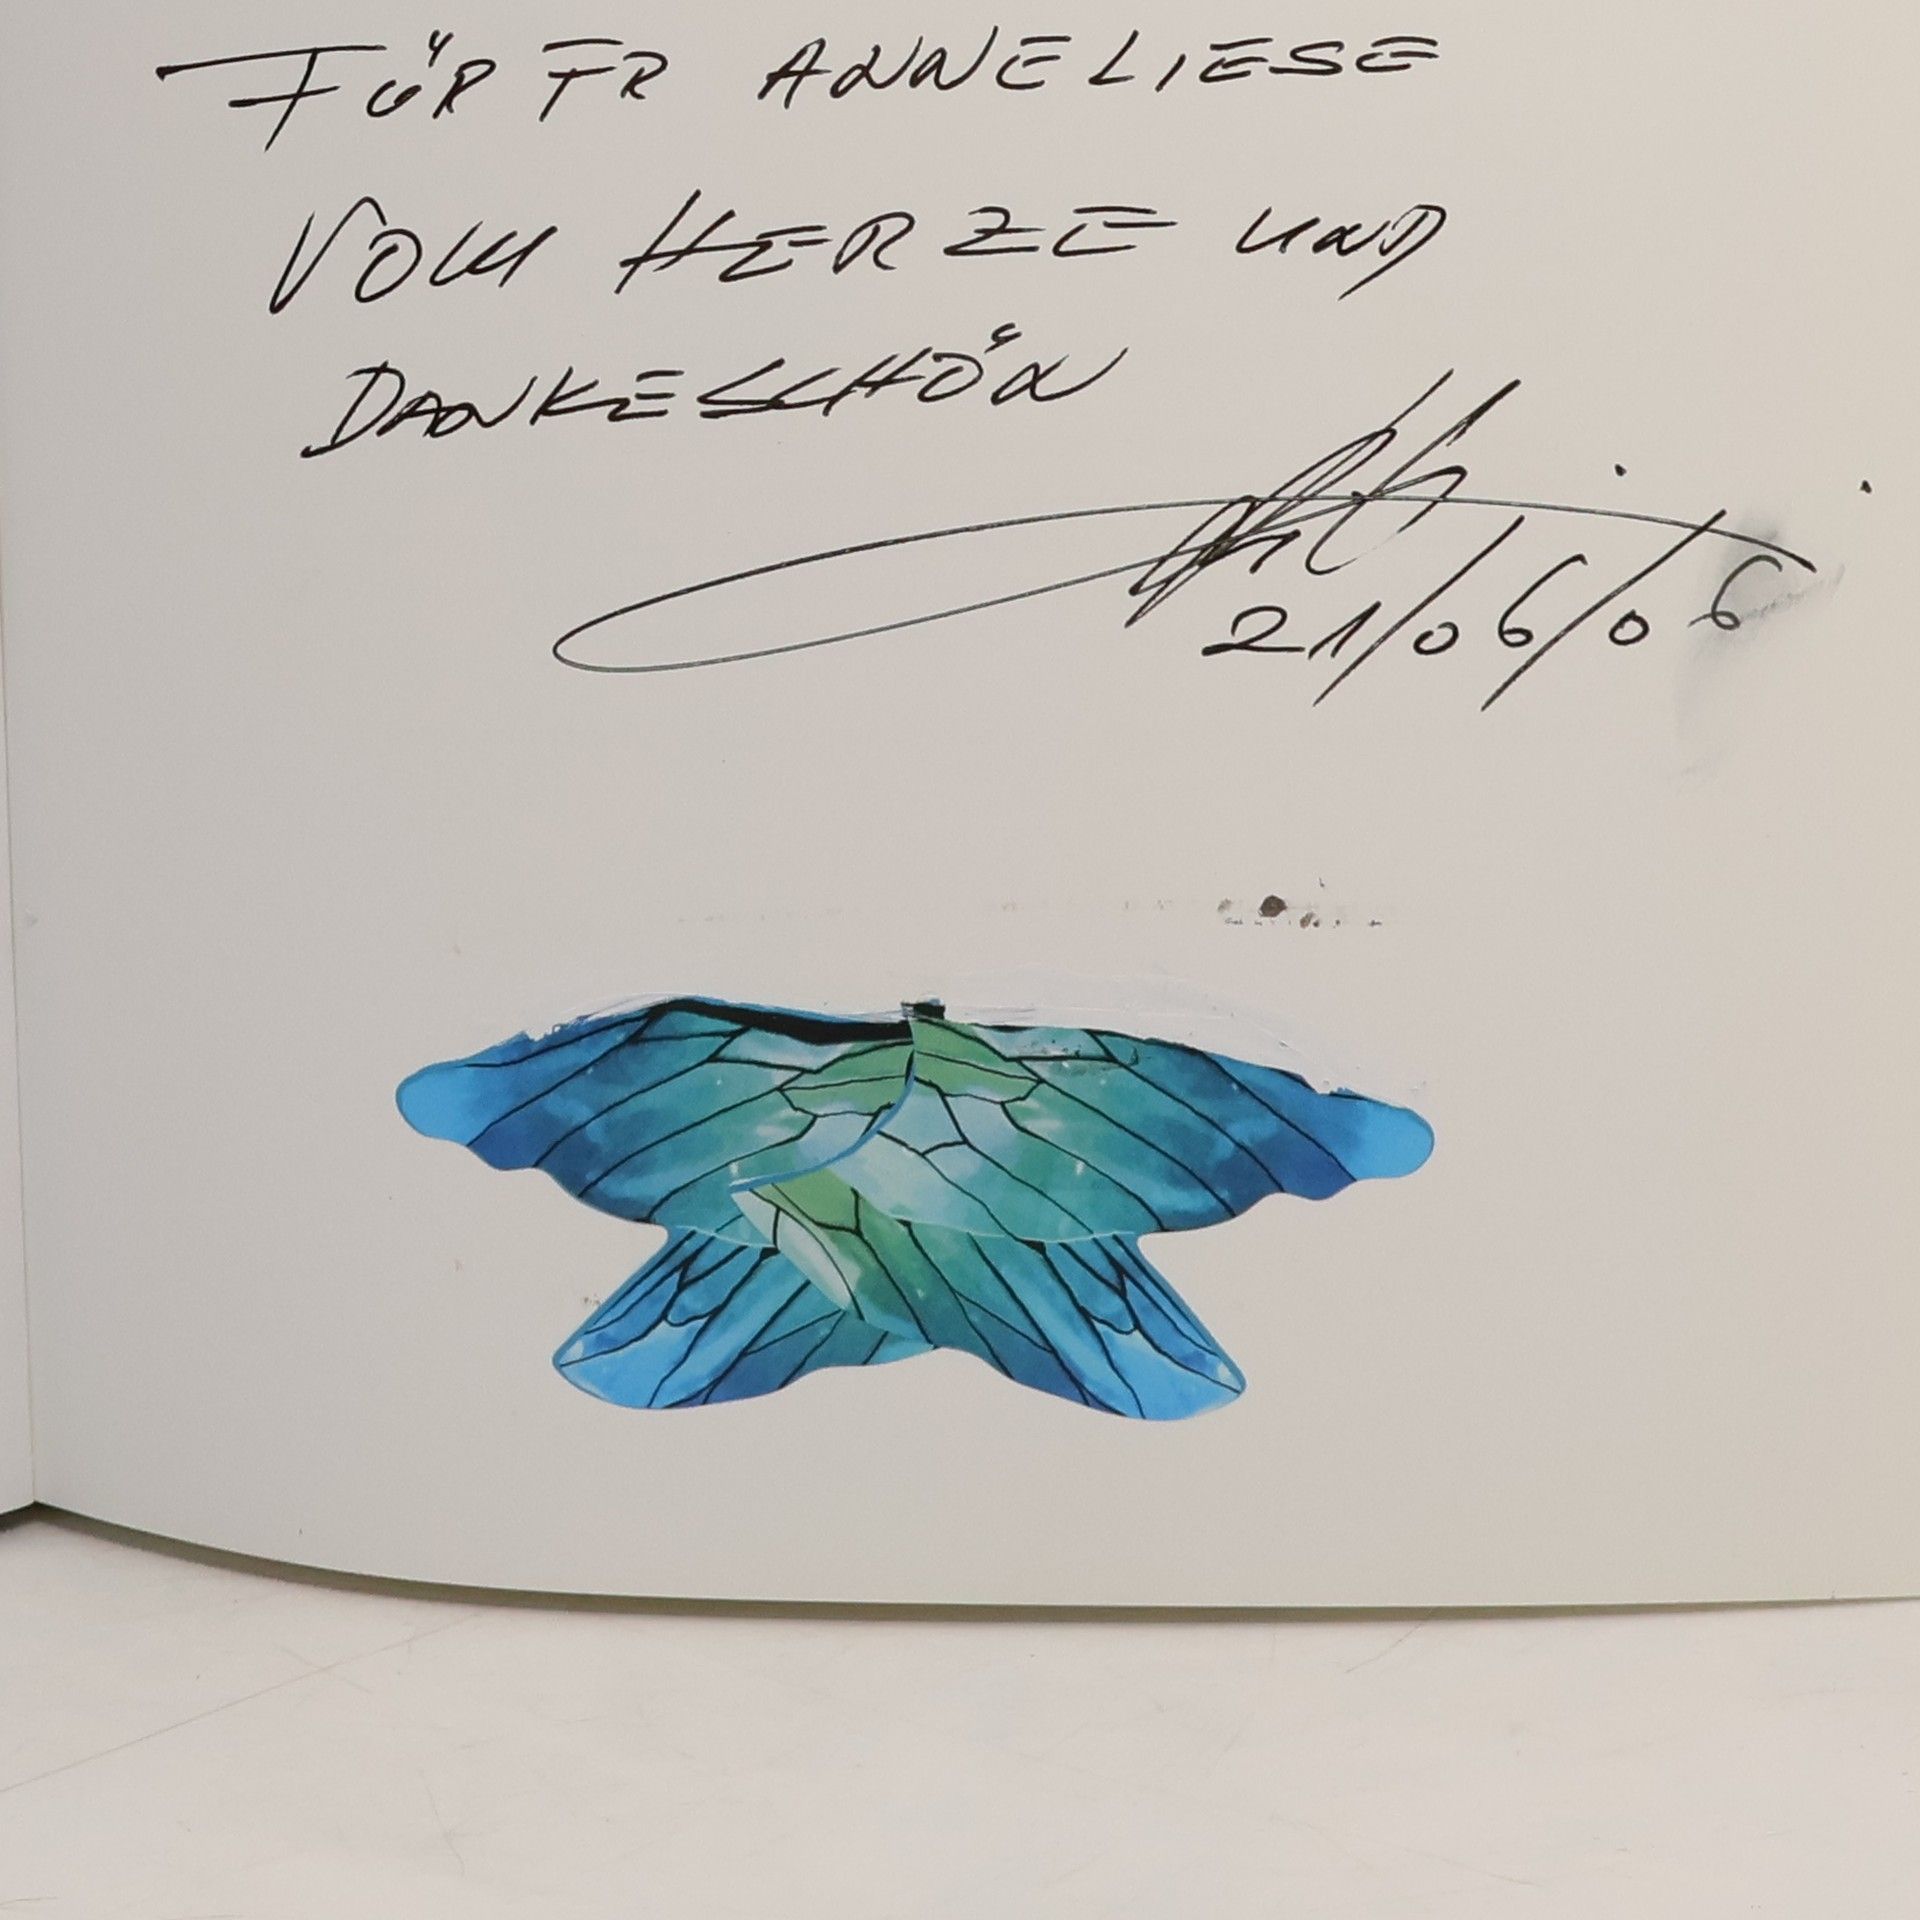 FÜR FR ANNELIESE
VOM HERZE UND
DANKESCHÖN
21/06/06